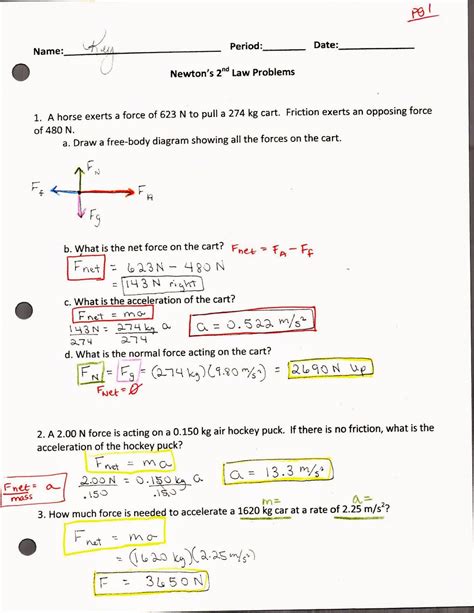 PG 1
Name: Key Period: Date:
Newton's 2nd Law Problems
1. A horse exerts a force of 623 N to pull a 274 kg cart. Friction exerts an opposing force
of 480 N.
a. Draw a free-body diagram showing all the forces on the cart.
F_N
F_f F_A
F_g
b. What is the net force on the cart? F_net = F_A - F_f
F_net = 623N - 480 N
= 143 N right
c. What is the acceleration of the cart?
F_net = ma
143 N = 274 kg a a = 0.522 m/s²
274 274
d. What is the normal force acting on the cart?
F_N = F_g = (274 kg)(9.80 m/s²) = 2690 N up
F_Net = 0
2. A 2.00 N force is acting on a 0.150 kg air hockey puck. If there is no friction, what is the
acceleration of the hockey puck?
F_net = ma
F_net = a 2.00 N = 0.150 kg a a = 13.3 m/s²
mass .150 .150
m= a=
3. How much force is needed to accelerate a 1620 kg car at a rate of 2.25 m/s²?
F_net = ma
= (1620 kg)(2.25 m/s²)
F = 3650 N